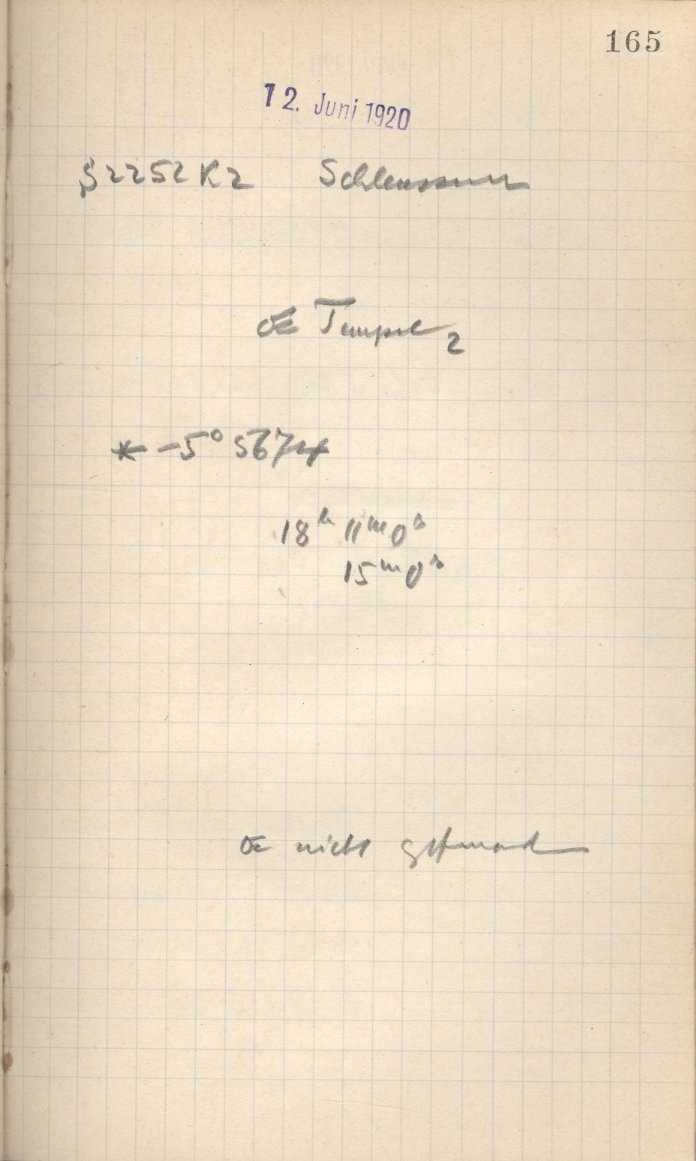 165
12. Juni 1920
S 2252 K2 Schleussner
☄ Tempel 2
* -5° 5674
18h 11m 0s
15m 0s
☄ nicht gefunden